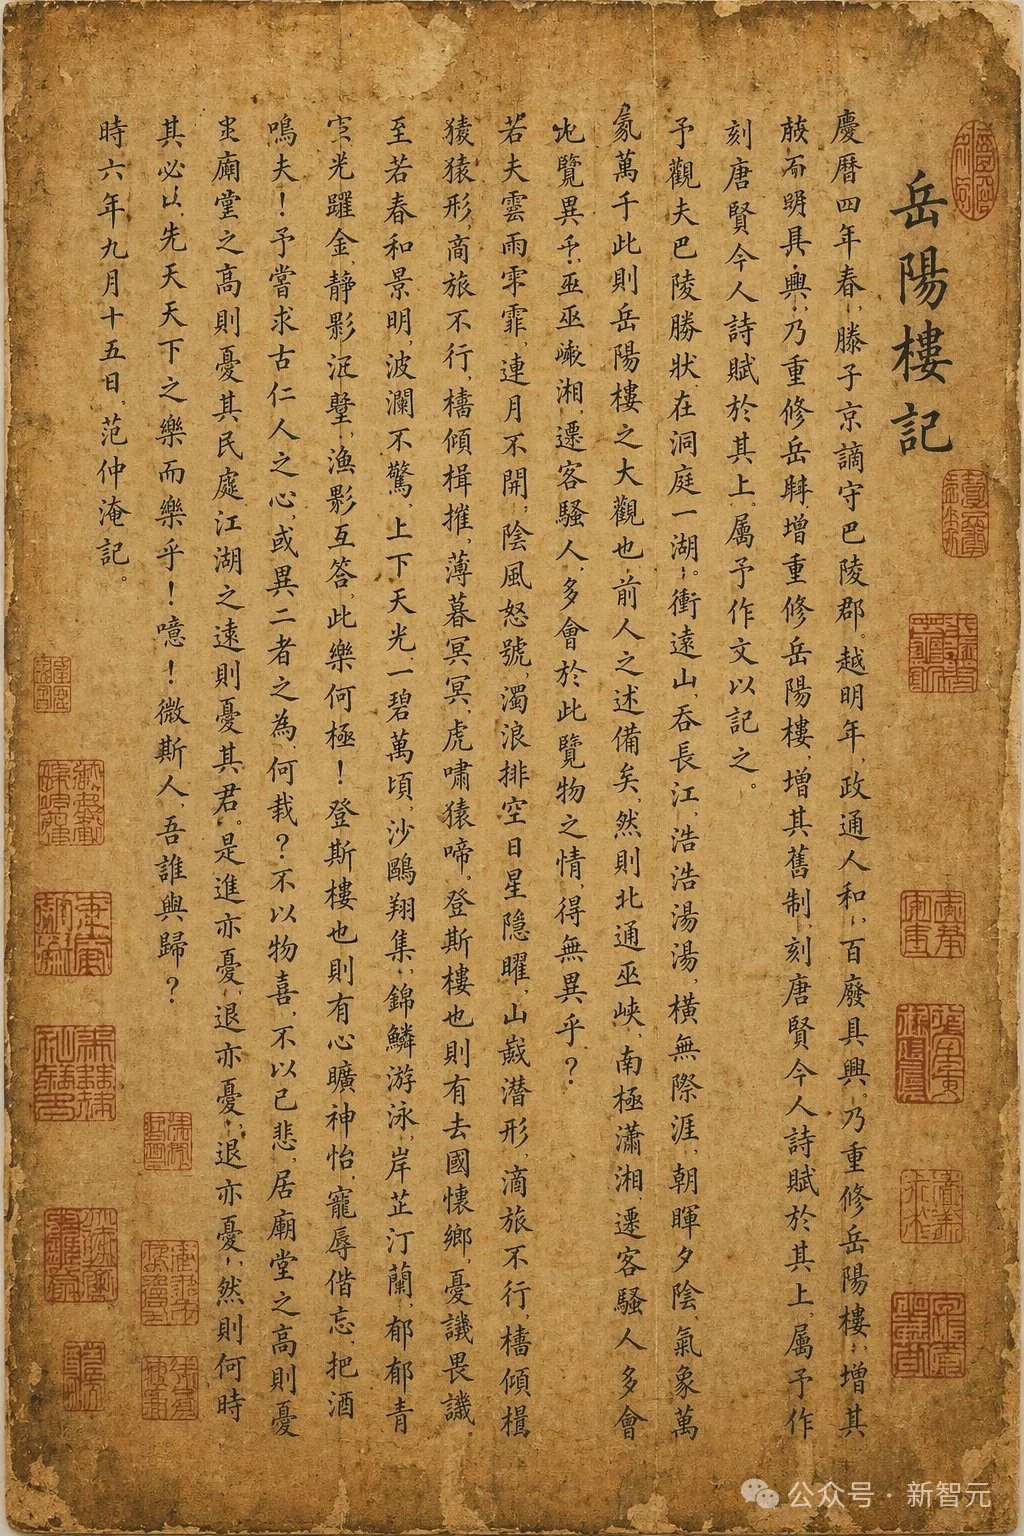 岳陽樓記
慶曆四年春,滕子京謫守巴陵郡。越明年,政通人和,百廢具興。乃重修岳陽樓,增其
明具興,乃重修岳增重修岳陽樓,增其舊制,刻唐賢今人詩賦於其上,属予作
刻唐賢今人詩賦於其上,属予作文以記之。
予觀夫巴陵勝状,在洞庭一湖。衝遠山,吞長江,浩浩湯湯,横無際涯,朝暉夕陰,氣象萬
萬千此則岳陽樓之大觀也,前人之述備矣,然則北通巫峽,南極瀟湘,遷客騷人多會
覽異乎,巫巫湘,遷客騷人,多會於此覽物之情,得無異乎?
若夫雲雨霏,連月不開,陰風怒號,濁浪排空日星隐曜,山潜形,滴旅不行,檣傾
猿形,商旅不行,檣傾楫摧,薄暮冥冥,虎嘯猿啼,登斯樓也則有去國懐鄉,憂譏畏譏。
至若春和景明,波瀾不驚,上下天光,一碧萬頃,沙鷗翔集,錦鱗游泳,岸芷汀蘭,郁郁青
光躍金,靜影,漁影互答,此樂何極!登斯樓也則有心曠神怡,寵辱偕忘,把酒
鳴夫!予嘗求古仁人之心,或異二者之為,何哉?不以物喜,不以己悲,居廟堂之高則憂
廟堂之高則憂其民處江湖之遠則憂其君。是進亦憂,退亦憂,退亦憂,然則何時
其必以先天天下之樂而樂乎!噫!微斯人,吾誰與歸?
時六年九月十五日,范仲淹記。
公众号·新智元